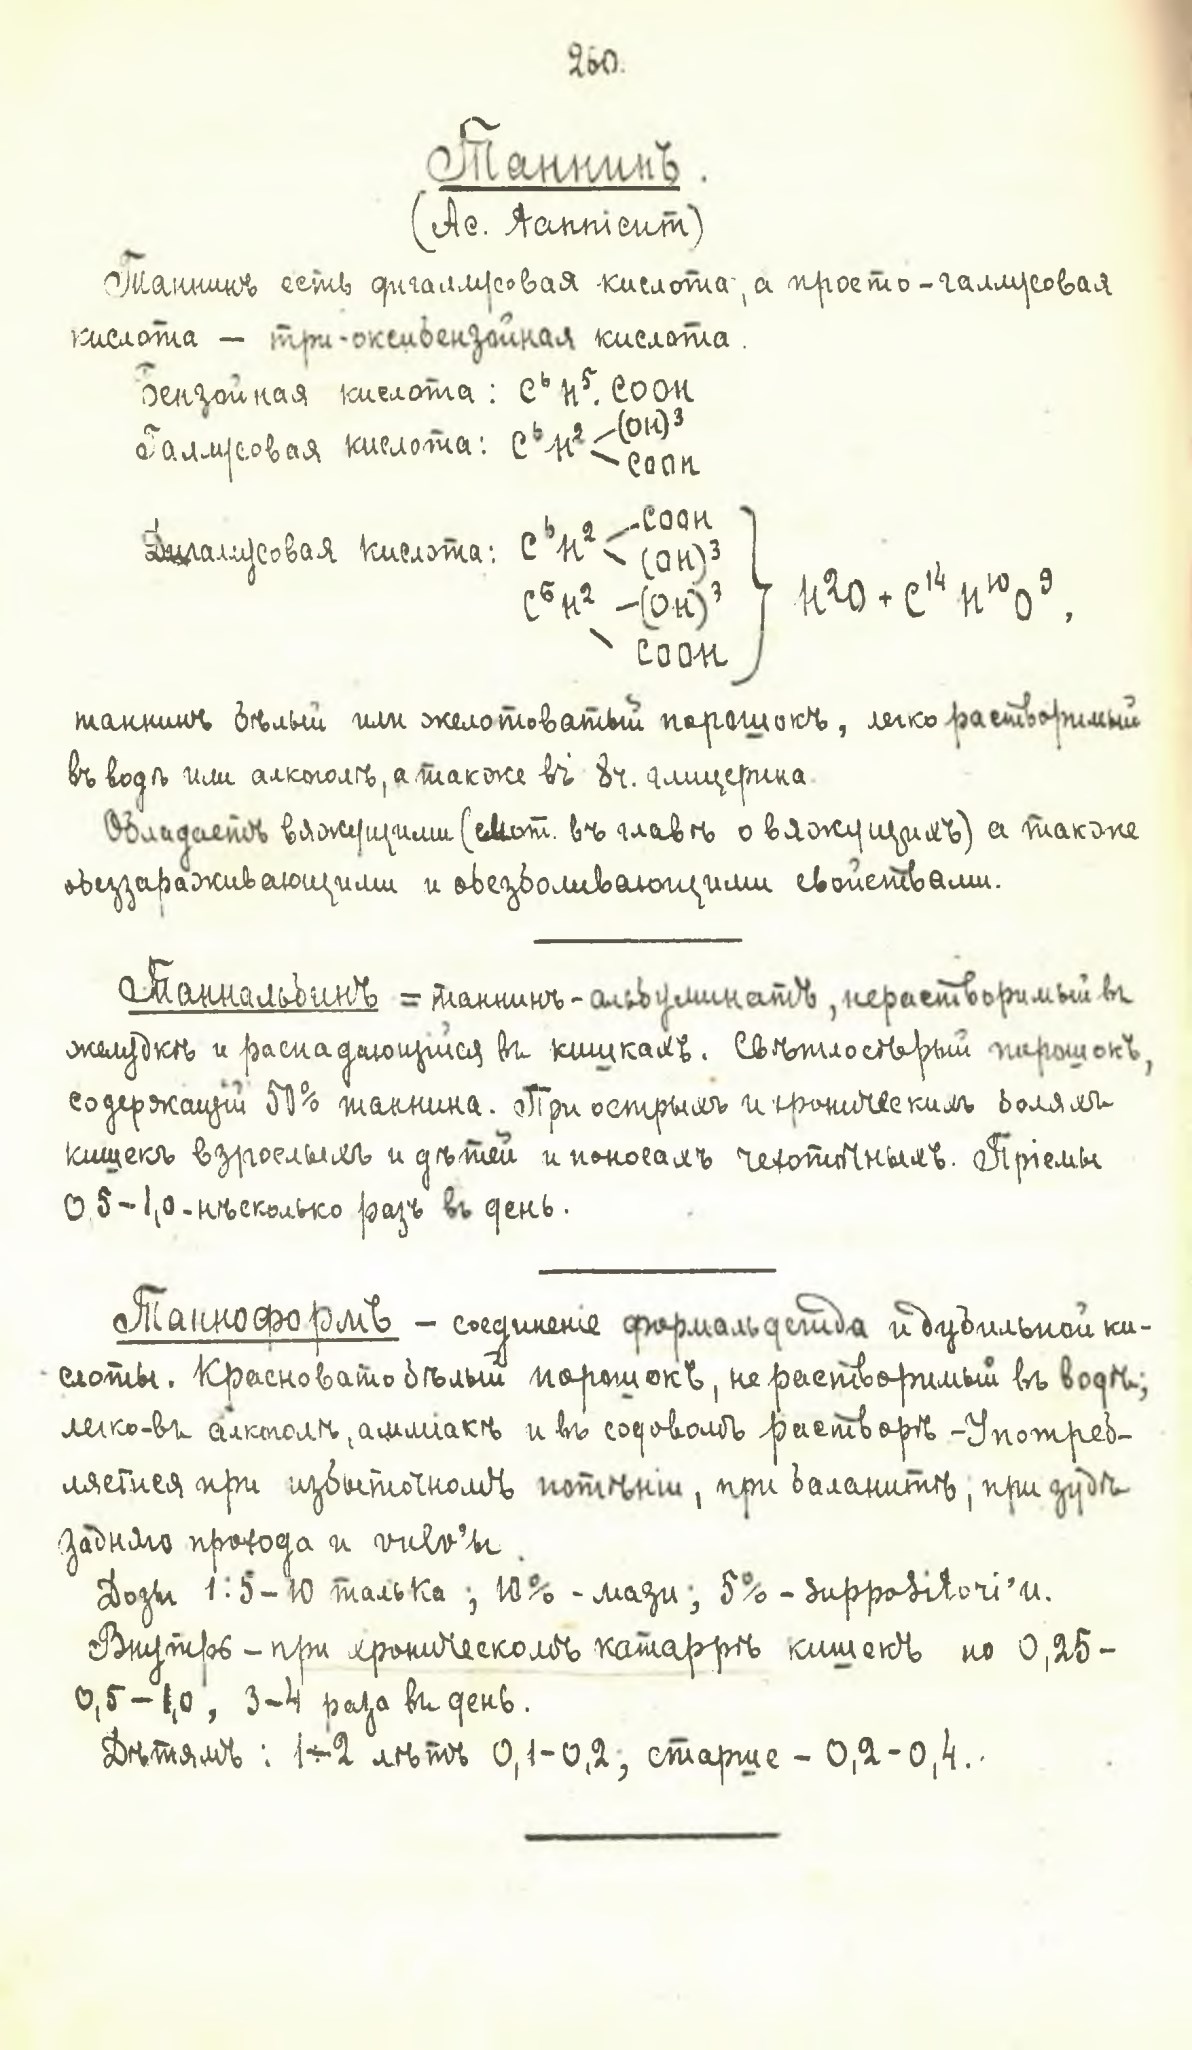 260.
Таннинъ.
(Ac. tannicum)
Таннинъ есть дигаллусовая кислота, а просто-галлусовая
кислота — три-оксибензойная кислота.
Бензойная кислота: C⁶H⁵.COOH
Галлусовая кислота: C⁶H² –(OH)³
COOH
Дигаллусовая кислота: C⁶H² –COOH
(OH)³
C⁶H² –(OH)³ } H²O + C¹⁴H¹⁰O⁹,
COOH
таннинъ бѣлый или желтоватый порошокъ, легко растворимый
въ водѣ или алкоголѣ, а также въ 8ч. глицерина.
Обладаетъ вяжущими (смот. въ главѣ о вяжущихъ) а также
обеззараживающими и обезболивающими свойствами.
Танналбинъ = таннинъ-альбуминатъ, нерастворимый въ
желудкѣ и распадающійся въ кишкахъ. Свѣтлосѣрый порошокъ,
содержащій 50% таннина. При острыхъ и хроническихъ боляхъ
кишекъ взрослыхъ и дѣтей и поносахъ чахоточныхъ. Пріемы
0,5–1,0-нѣсколько разъ въ день.
Танноформъ – соединеніе формальдегида и дубильной ки-
слоты. Красноватобѣлый порошокъ, нерастворимый въ водѣ;
легко-въ алкоголѣ, амміакѣ и въ содовомъ растворѣ – Употреб-
ляется при избыточномъ потѣніи, при баланитѣ, при зудѣ
задняго прохода и vulv'ы.
Дозы 1:5–10 талька; 10% - мази; 5% - suppositori'и.
Внутрь – при хроническомъ катаррѣ кишекъ по 0,25–
0,5–1,0, 3–4 раза въ день.
Дѣтямъ: 1÷2 лѣтъ 0,1–0,2, старше – 0,2–0,4.